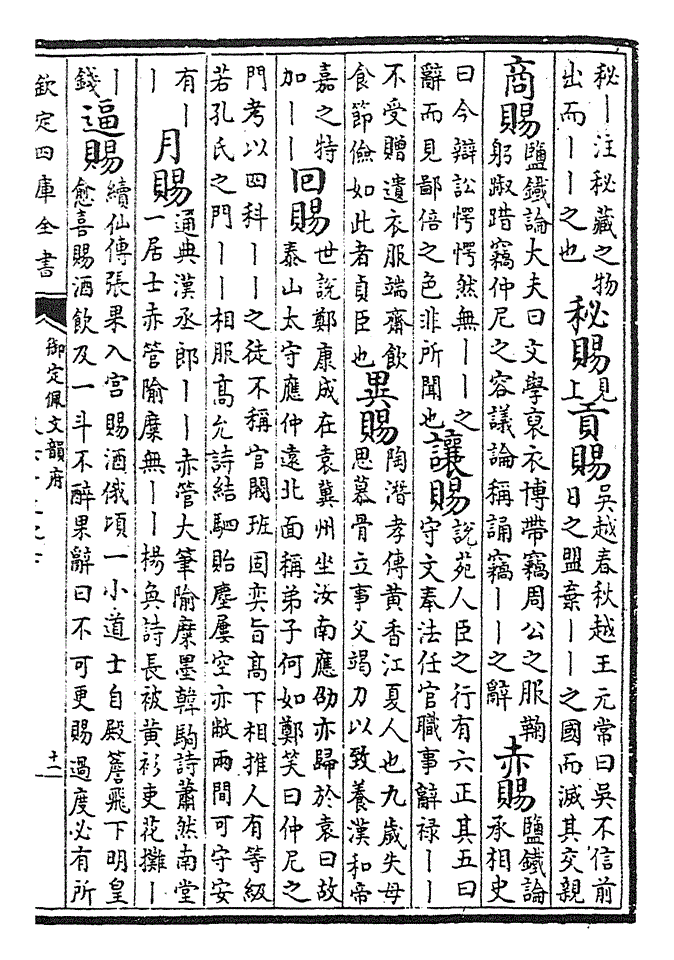 秘丨注秘藏之物
出而丨丨之也
秘賜
見
上
貢賜
吳越春秋越王元常曰吳不信前
日之盟棄丨丨之國而滅其交親
商賜
鹽鐵論大夫曰文學裒衣博帶竊周公之服鞠
躬踧踖竊仲尼之容議論稱誦竊丨丨之辭
赤賜
鹽鐵論
承相史
曰今辯訟愕愕然無丨丨之
辭而見鄙倍之色非所聞也
讓賜
說苑人臣之行有六正其五曰
守文奉法任官職事辭祿丨丨
不受贈遺衣服端齋飲
食節儉如此者貞臣也
異賜
陶潛孝傳黃香江夏人也九歲失母
思慕骨立事父竭力以致養漢和帝
嘉之特
加丨丨
回賜
世說鄭康成在袁冀州坐汝南應劭亦歸於袁曰故
泰山太守應仲遠北面稱弟子何如鄭笑曰仲尼之
門考以四科丨丨之徒不稱官閥班固奕旨高下相推人有等級
若孔氏之門丨丨相服高允詩結駟貽塵屢空亦敝兩間可守安
有丨
丨
月賜
通典漢丞郎丨丨赤管大筆隃糜墨韓駒詩蕭然南堂
一居士赤管隃糜無丨丨楊奐詩長被黃衫吏花攤丨
丨
錢
逼賜
續仙傳張果入宮賜酒俄頃一小道士自殿簷飛下明皇
愈喜賜酒飲及一斗不醉果辭曰不可更賜過度必有所
欽定四庫全書
御定佩文韻府
十二